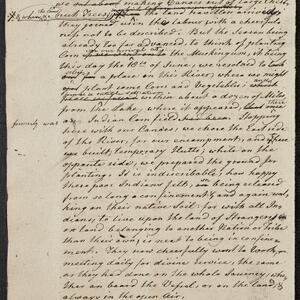 out about making Canoes of large
they joined in this labour with a cheerful-
ness not to be described. But the Season being
already too far advanced to think of planting
Corn on the Muskingum, it was
this day the 18th of June, we resolved to look
for a place on this River, where we might
plant some Corn and Vegetables;
with about a dozen of miles
from the Lake, where it appeared, that there once
formerly was
an Indian Corn Field. Stopping
here with our Canoes, we chose the East side
of the River, for our encampment, and there
we built temporary Huts; while on the
opposite side, we prepared the ground for
planting. It is indescribable, how happy
these poor Indians felt, in being released
from so long a confinement, & again work-
ing on their native Soil: for with all In-
dians, to live upon the land of Strangers,
or on land belonging to another Nation or Tribe
than their own, is next to being in confine-
ment. They now chearfully went to work,
meeting daily for divine Service, the same
as they had done on the whole Journey, whe-
ther on board the Vessel, or on the land, &
always in the open Air.